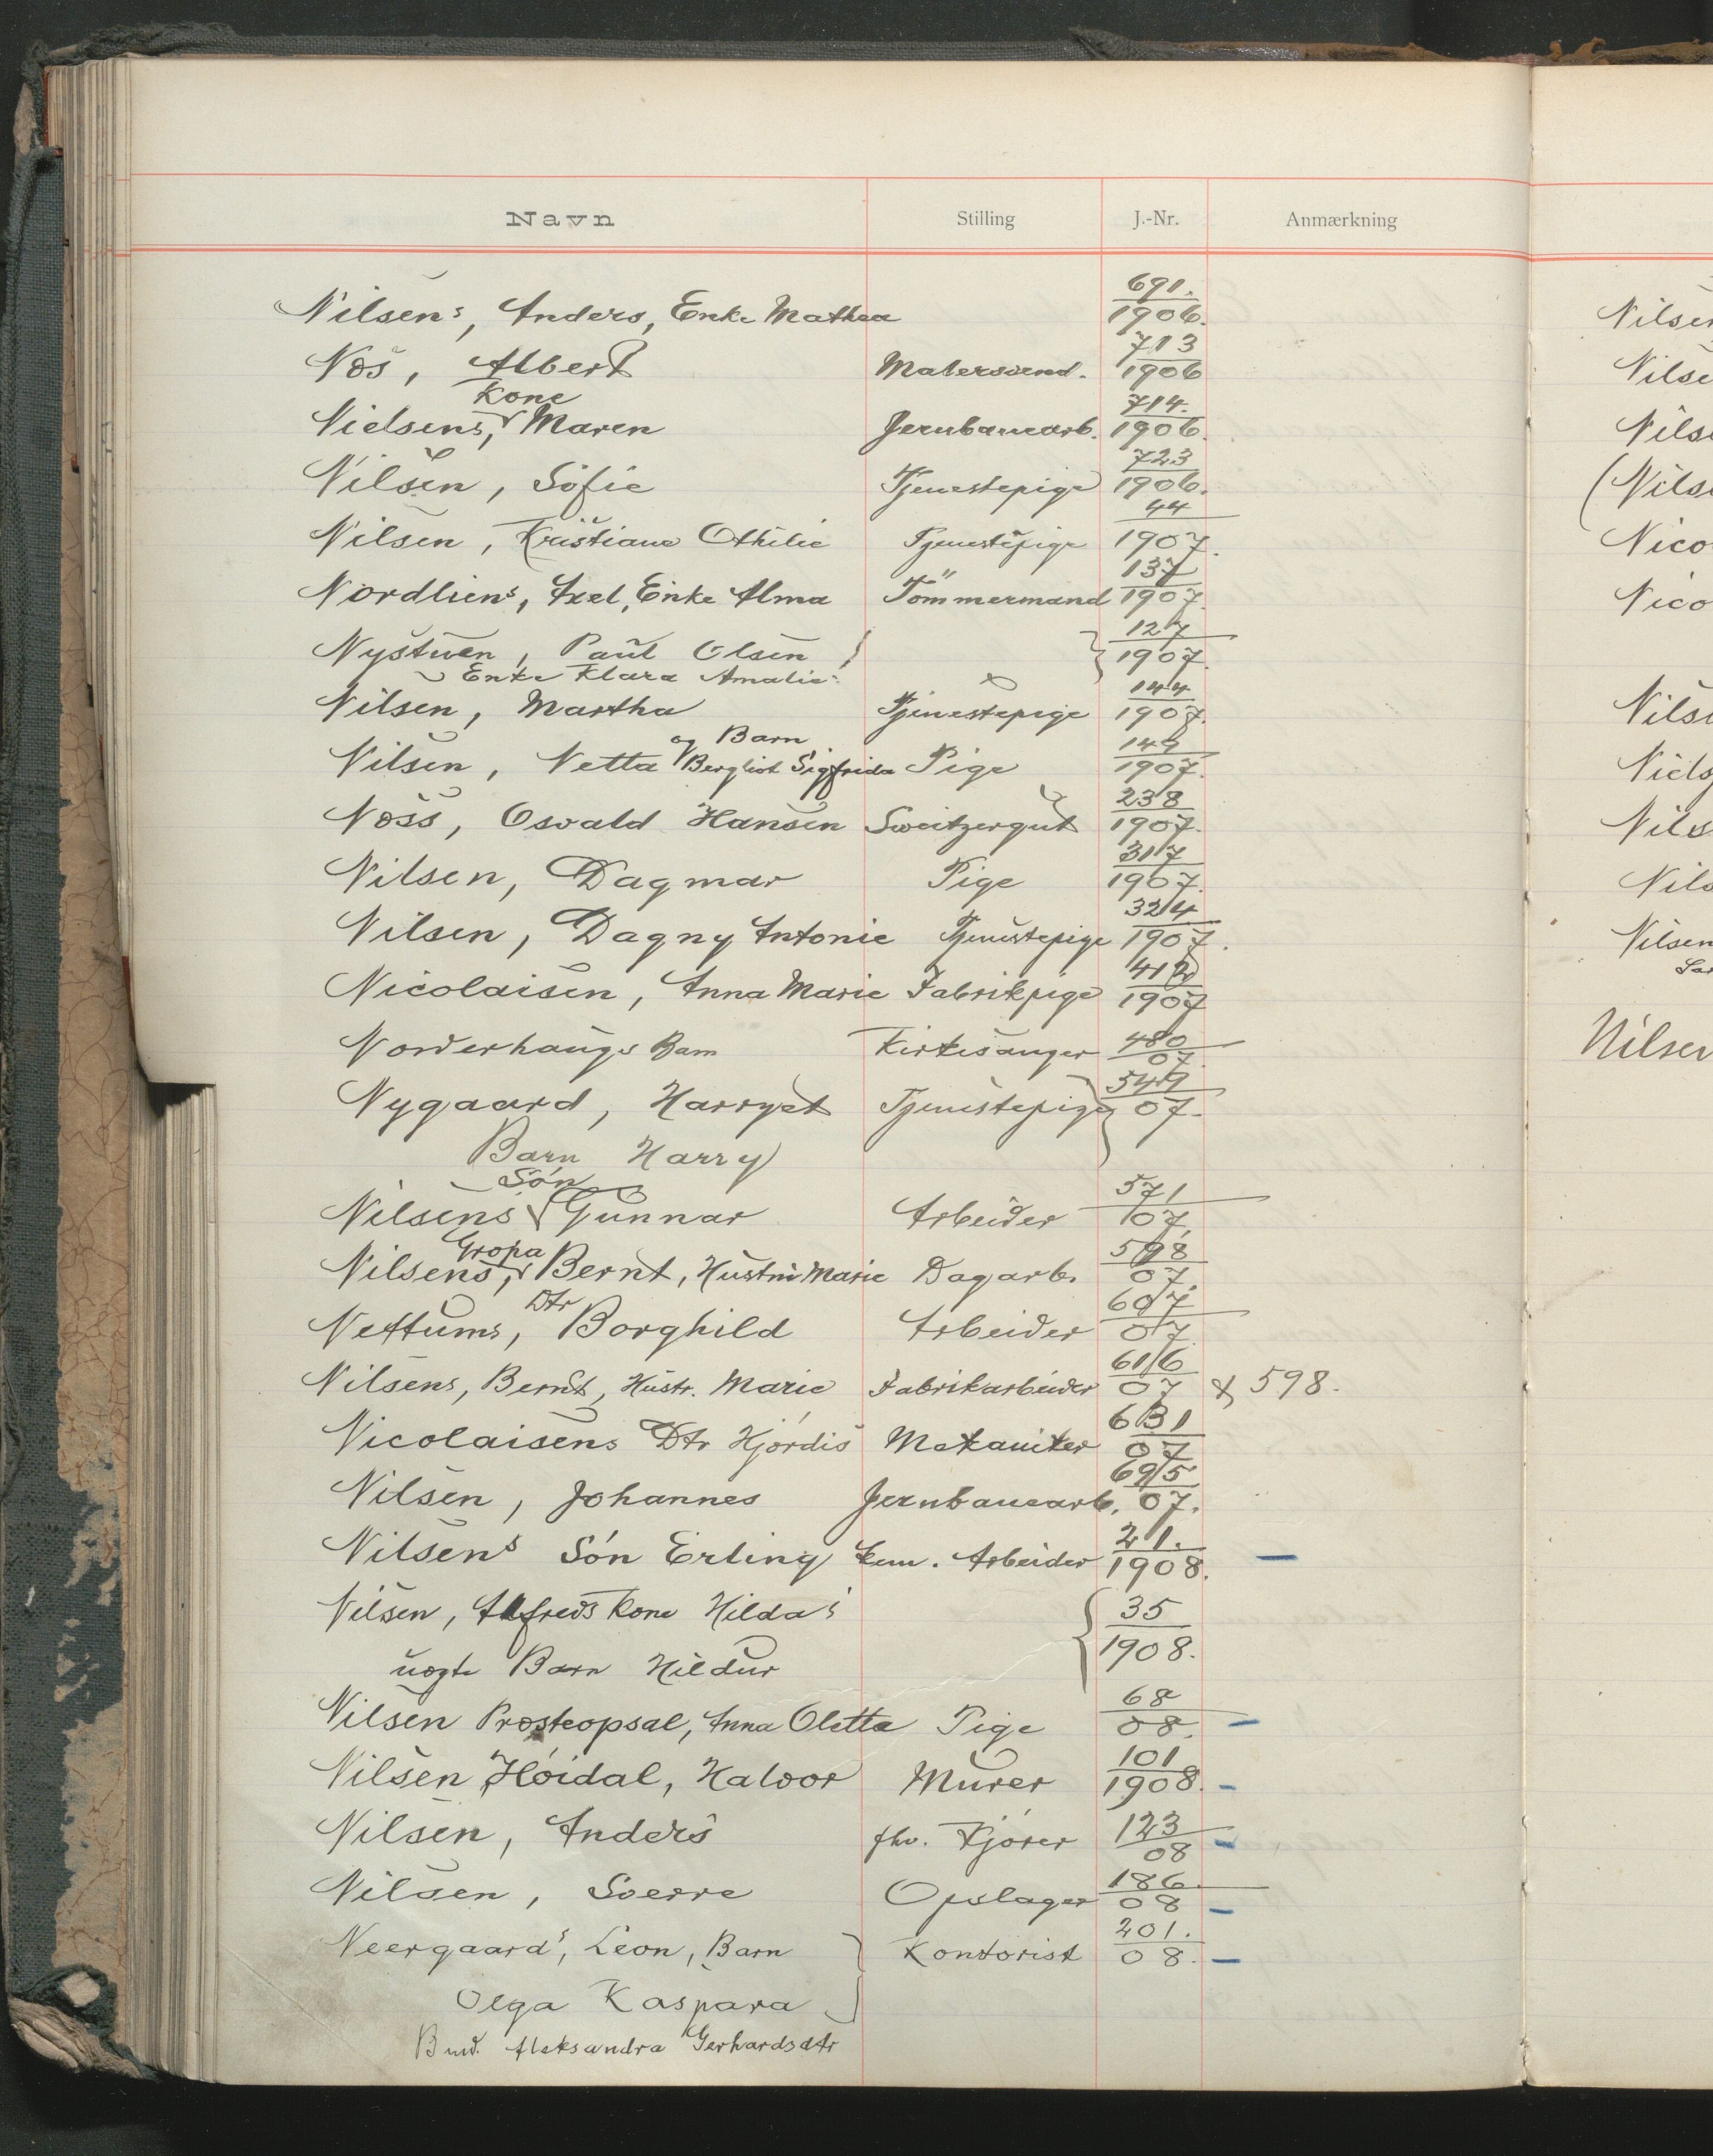 Navn Stilling J.-Nr. Anmærkning
Nilsens, Anders, Enke Mathea 691./1906.
Næs, Albert Malersvend. 713/1906
Nielsens, Kone Maren Jernbanearb. 714./1906.
Nilsen, Sofie Tjenestepige 723/1906.
Nilsen, Kristiane Othilie Tjenestepige 44/1907.
Nordliens, Axel, Enke Alma Tömmermand 137/1907.
Nystuen, Paul Olsen } 127/1907.
Enke Klara Amalie
Nilsen, Martha Tjenestepige 144/1907.
Nilsen, Netta og Barn Bergliot Sigfrida Pige 149/1907.
Næss, Osvald Hansen Sweitzergut 238/1907.
Nilsen, Dagmar Pige 317/1907.
Nilsen, Dagny Antonie Tjenestepige 324/1907.
Nicolaisen, Anna Marie Fabrikpige 412/1907
Norderhaugs Barn Kirkesanger 480/07
Nygaard, Harryet Tjenestepige 549/07.
Barn Harry
Nilsens Són Gunnar Arbeider 571/07.
Nilsens, Gropa Bernt, Hustru Marie Dagarb. 598/07.
Nettums, Dtr Borghild Arbeider 607/07
Nilsens, Bernt, Hustr. Marie Fabrikarbeider 616/07 & 598.
Nicolaisens Dtr Hjórdis Mekaniker 631/07
Nilsen, Johannes Jernbanearb. 695/07.
Nilsens Són Erling kem. Arbeider 21./1908. —
Nilsen, Alfreds Kone Hilda's { 35/1908.
uægte Barn Hildur
Nilsen Præsteopsal, Anna Oletta Pige 68/08. —
Nilsen Hóidal, Halvor Murer 101/1908. -
Nilsen, Anders fhv. Kjórer 123/08 -
Nilsen, Sverre Opslager 186./08 -
Neergaard's, Leon, Barn } Kontorist 201./08. —
Olga Kaspara
Bmd. Aleksandra Gerhardsdtr
Nilsen
Nilse
Nils
(Nils
Nico
Nico
Nils
Niels
Nils
Nils
Nilsen
Nilsen